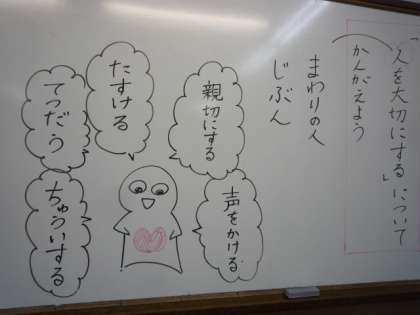 「人を大切にする」について
かんがえよう
まわりの人
じぶん
親切にする
声をかける
たすける
てつだう
ちゅういする